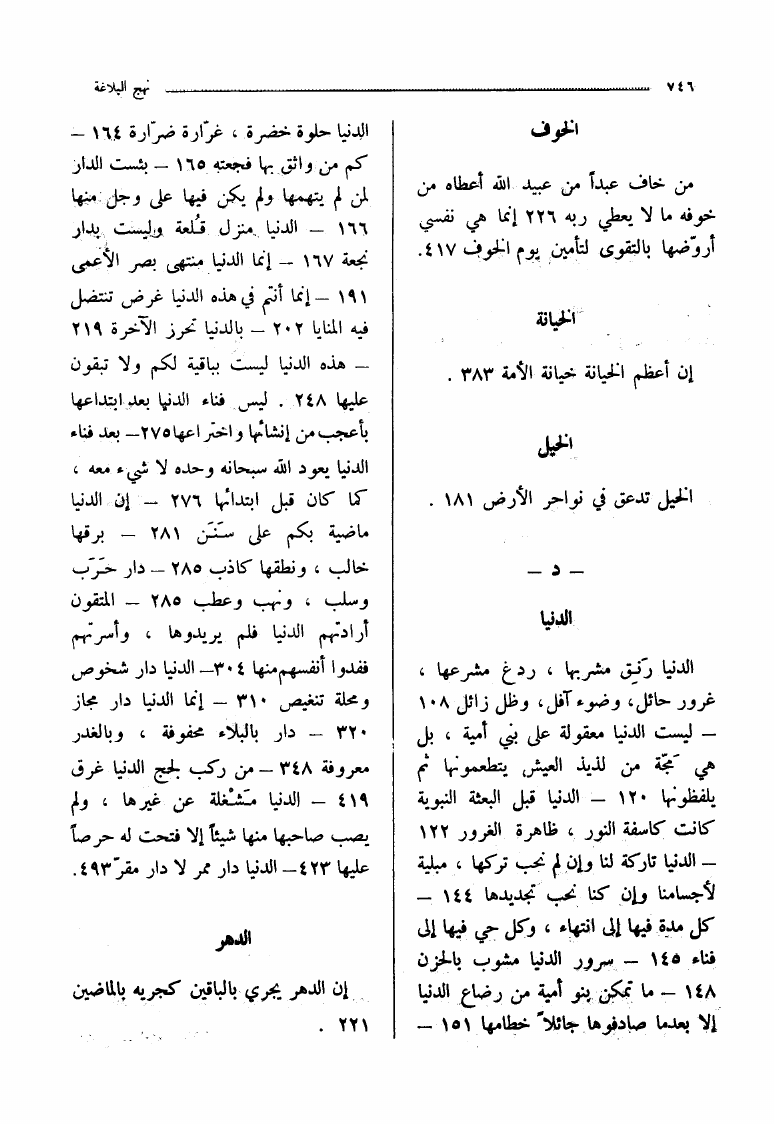 ٧٤٦ نهج البلاغة
الخوف
من خاف عبداً من عبيد الله أعطاه من
خوفه ما لا يعطي ربه ٢٢٦ إنما هي نفسي
أروّضها بالتقوى لتأمين يوم الخوف ٤١٧.
الخيانة
إن أعظم الخيانة خيانة الأمة ٣٨٣ .
الخيل
الخيل تدعق في نواحر الأرض ١٨١ .
— د —
الدنيا
الدنيا رَنِق مشربها ، ردغ مشرعها ،
غرور حائل، وضوء آفل، وظل زائل ١٠٨
— ليست الدنيا معقولة على بني أمية ، بل
هي مَجّة من لذيذ العيش يتطعمونها ثم
يلفظونها ١٢٠ — الدنيا قبل البعثة النبوية
كانت كاسفة النور ، ظاهرة الغرور ١٢٢
— الدنيا تاركة لنا وإن لم نحب تركها ، مبلية
لأجسامنا وإن كنا نحب تجديدها ١٤٤ —
كل مدة فيها إلى انتهاء ، وكل حي فيها إلى
فناء ١٤٥ — سرور الدنيا مشوب بالحزن
١٤٨ — ما تمكن بنو أمية من رضاع الدنيا
إلا بعدما صادفوها جائلاً خطامها ١٥١ —
الدنيا حلوة خضرة ، غرّارة ضرّارة ١٦٤ —
كم من واثق بها فجعته ١٦٥ — بئست الدار
لمن لم يتهمها ولم يكن فيها على وجل منها
١٦٦ — الدنيا منزل قُلعة وليست بدار
نجعة ١٦٧ — إنما الدنيا منتهى بصر الأعمى
١٩١ — إنما أنتم في هذه الدنيا غرض تنتضل
فيه المنايا ٢٠٢ — بالدنيا تحرز الآخرة ٢١٩
— هذه الدنيا ليست بباقية لكم ولا تبقون
عليها ٢٤٨ . ليس فناء الدنيا بعد ابتداعها
بأعجب من إنشائها واختراعها ٢٧٥ — بعد فناء
الدنيا يعود الله سبحانه وحده لا شيء معه ،
كما كان قبل ابتدائها ٢٧٦ — إن الدنيا
ماضية بكم على سَنَن ٢٨١ — برقها
خالب ، ونطقها كاذب ٢٨٥ — دار حَرَب
وسلب ، ونهب وعطب ٢٨٥ — المتقون
أرادتهم الدنيا فلم يريدوها ، وأسرتهم
ففدوا أنفسهم منها ٣٠٤ — الدنيا دار شخوص
ومحلة تنغيص ٣١٠ — إنما الدنيا دار مجاز
٣٢٠ — دار بالبلاء محفوفة ، وبالغدر
معروفة ٣٤٨ — من ركب لجج الدنيا غرق
٤١٩ — الدنيا مَشْغلة عن غيرها ، ولم
يصب صاحبها منها شيئاً إلا فتحت له حرصاً
عليها ٤٢٣ — الدنيا دار ممر لا دار مقرّ ٤٩٣.
الدهر
إن الدهر يجري بالباقين كجريه بالماضين
٢٢١ .